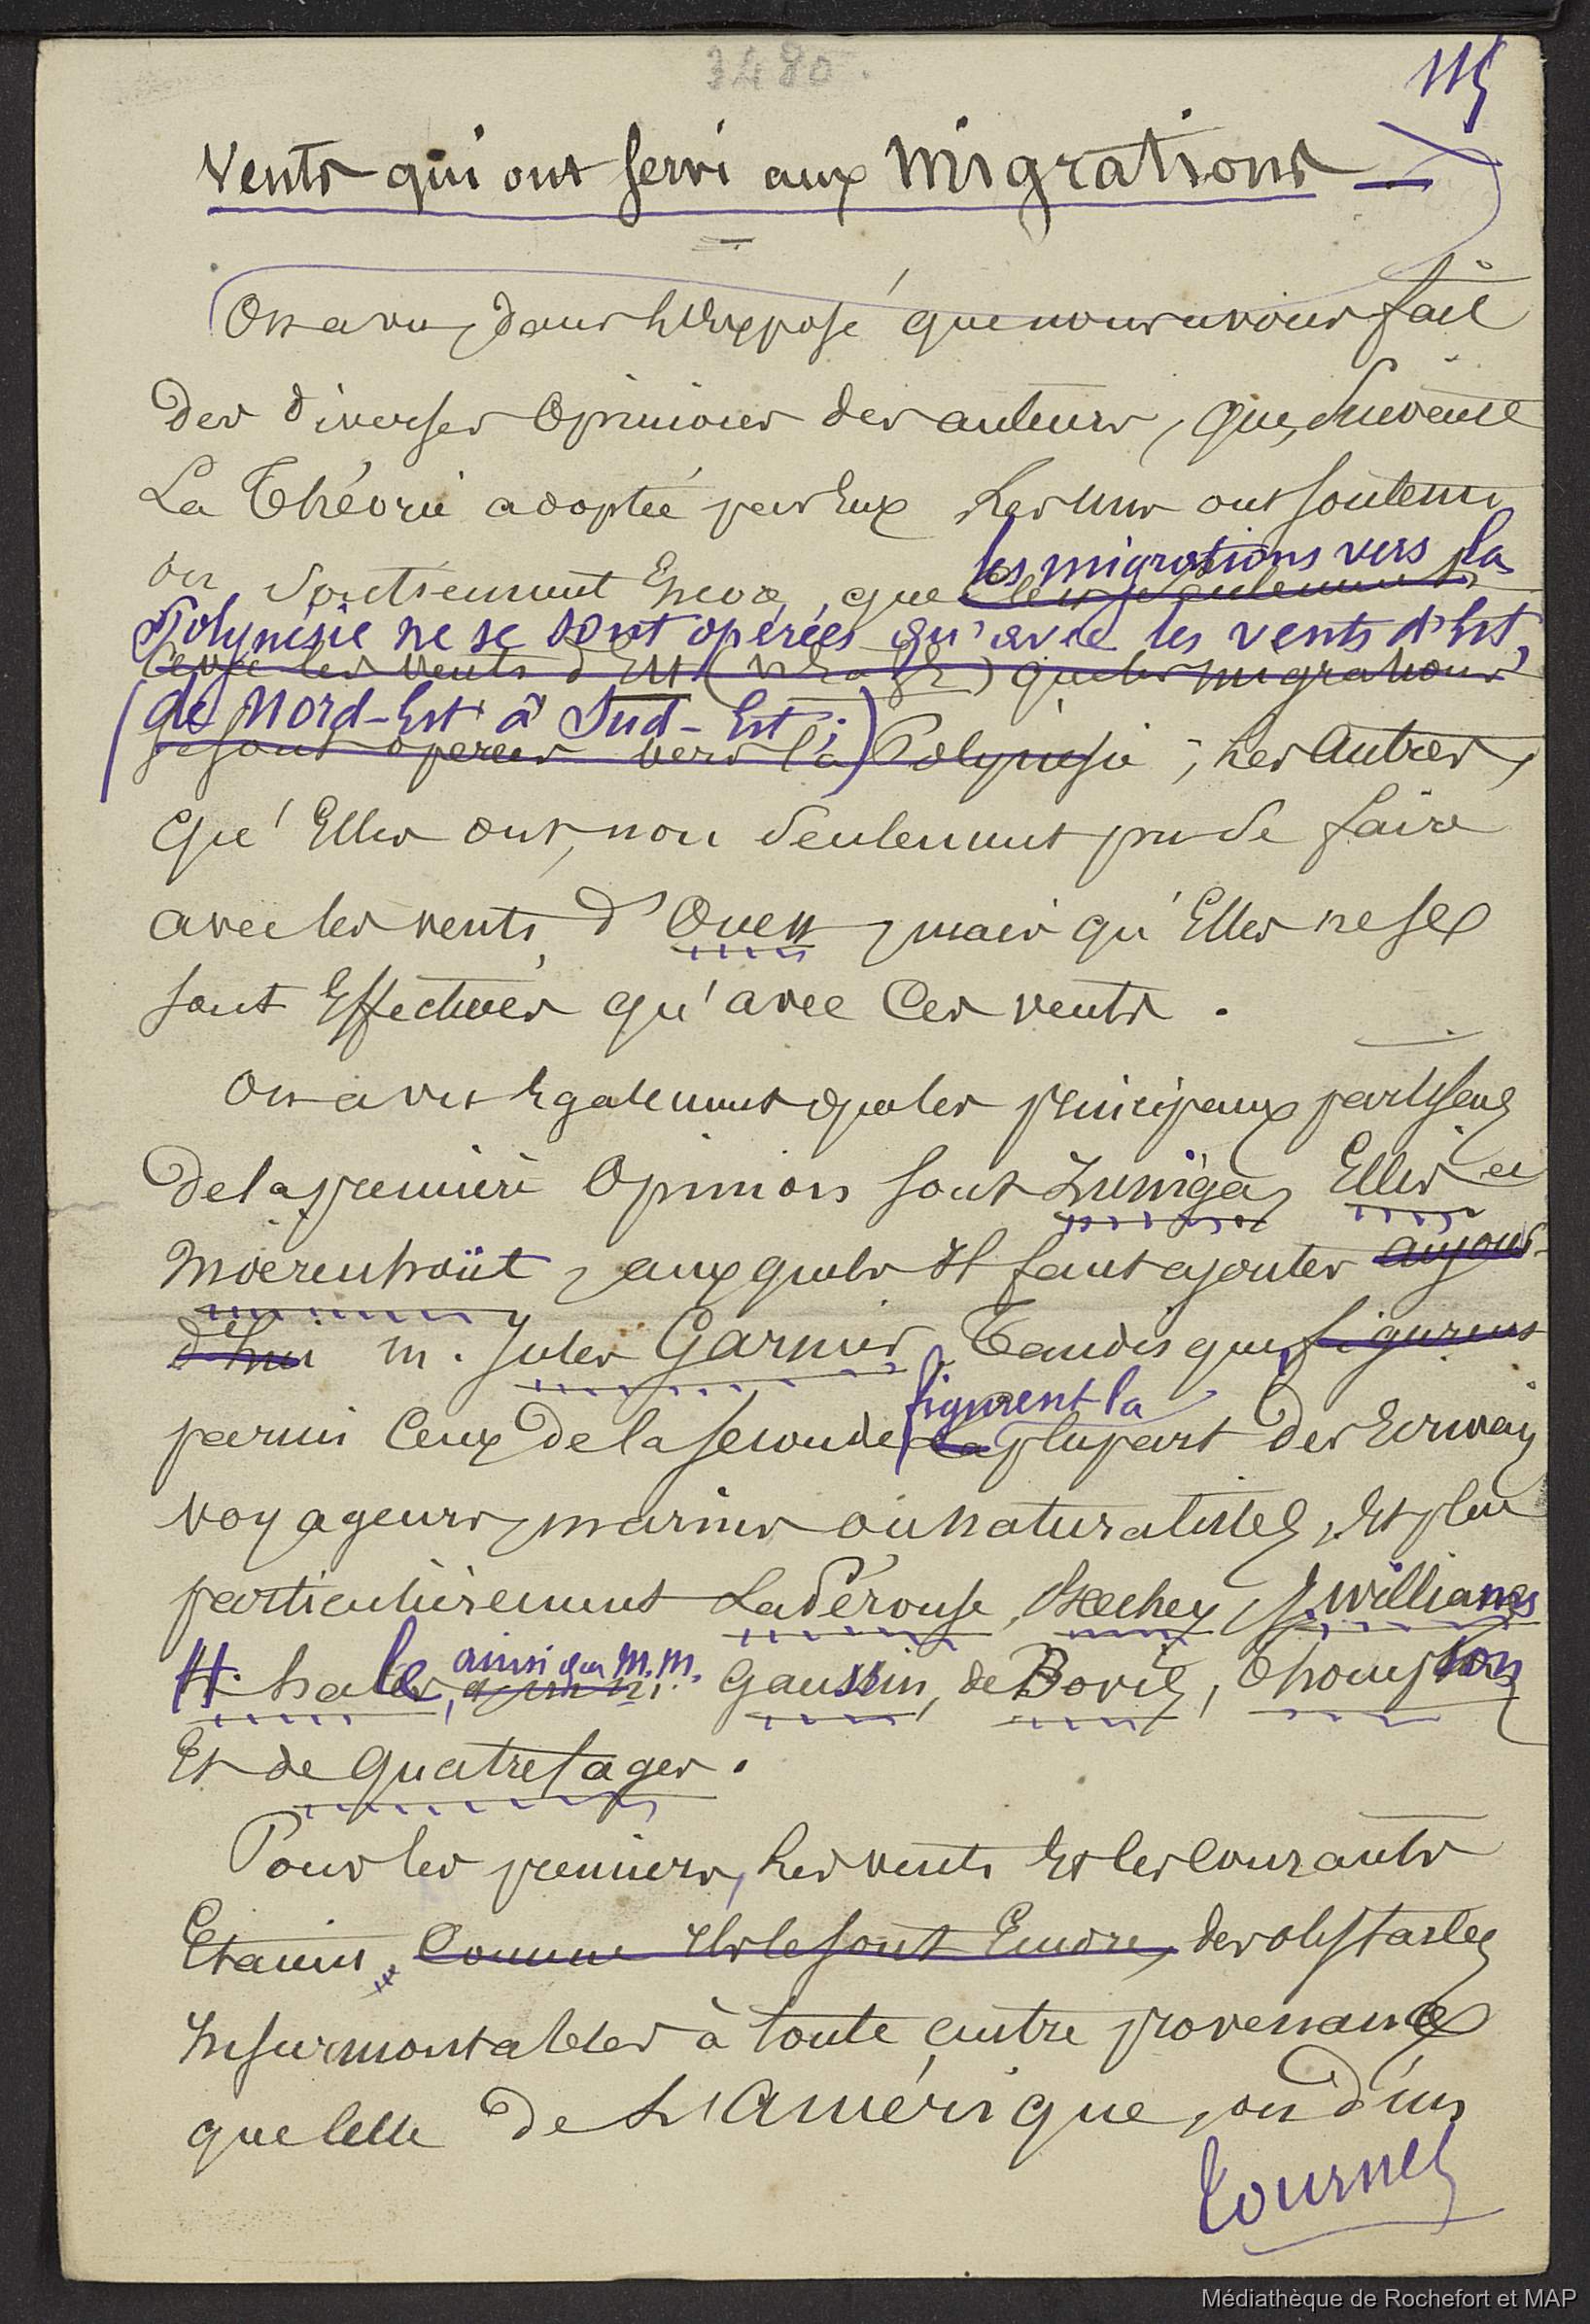 3480.
115
Vents qui ont servi aux Migrations —
On a vu, dans l'Exposé que nous avons fait
des diverses Opinions des auteurs, que, Suivant
La Théorie adoptée par Eux, Les uns ont soutenu
ou soutiennent Encore, que les migrations vers la
Polynésie ne se sont opérées qu'avec les vents d'Est,
avec les vents d'Est (N.E. à S.E.) que les migrations
(de Nord-Est à Sud-Est;)
se sont opérées vers la Polynésie ; Les Autres,
qu'Elles ont, non Seulement pu se faire
avec les vents d'Ouest, mais qu'Elles ne se
sont Effectuées qu'avec Ces vents.
On a vu Egalement que les principaux partisans
de la première Opinion sont Zuniga, Ellis et
Moerenhoüt, auxquels Il faut ajouter aujour-
d'hui M. Jules Garnier, Tandis que, figurent
parmi Ceux de la seconde figurent la la plupart des Ecrivains
voyageurs, marins ou naturalistes, Et plus
particulièrement LaPérouse, Beechey, J. Williams
H. hale, ainsi que M.M. Gaussin, de Bovis, Thompson
Et de Quatrefages.
Pour les premiers, Les vents Et les Courants
Etaient, Comme Ils le sont Encore, des obstacles
Insurmontables à toute autre provenance
que Celle de L'Amérique, ou d'un
Tournez
Médiathèque de Rochefort et MAP